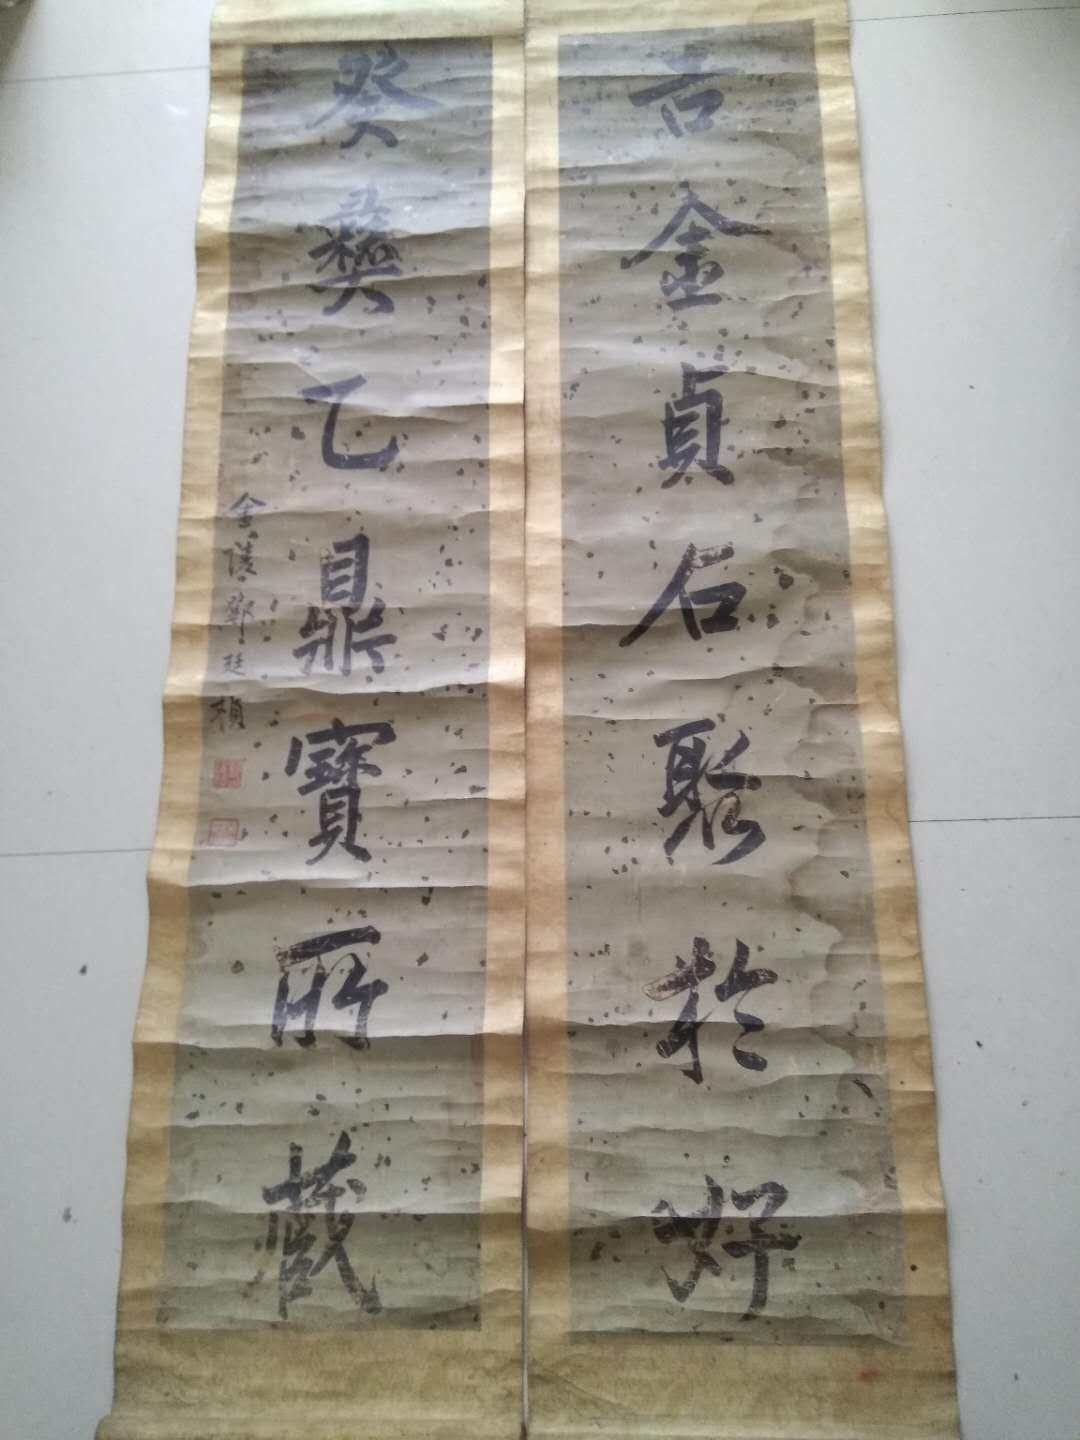 吉金貞石聚於好
癸彝乙鼎寶所藏
金陵鄧廷楨